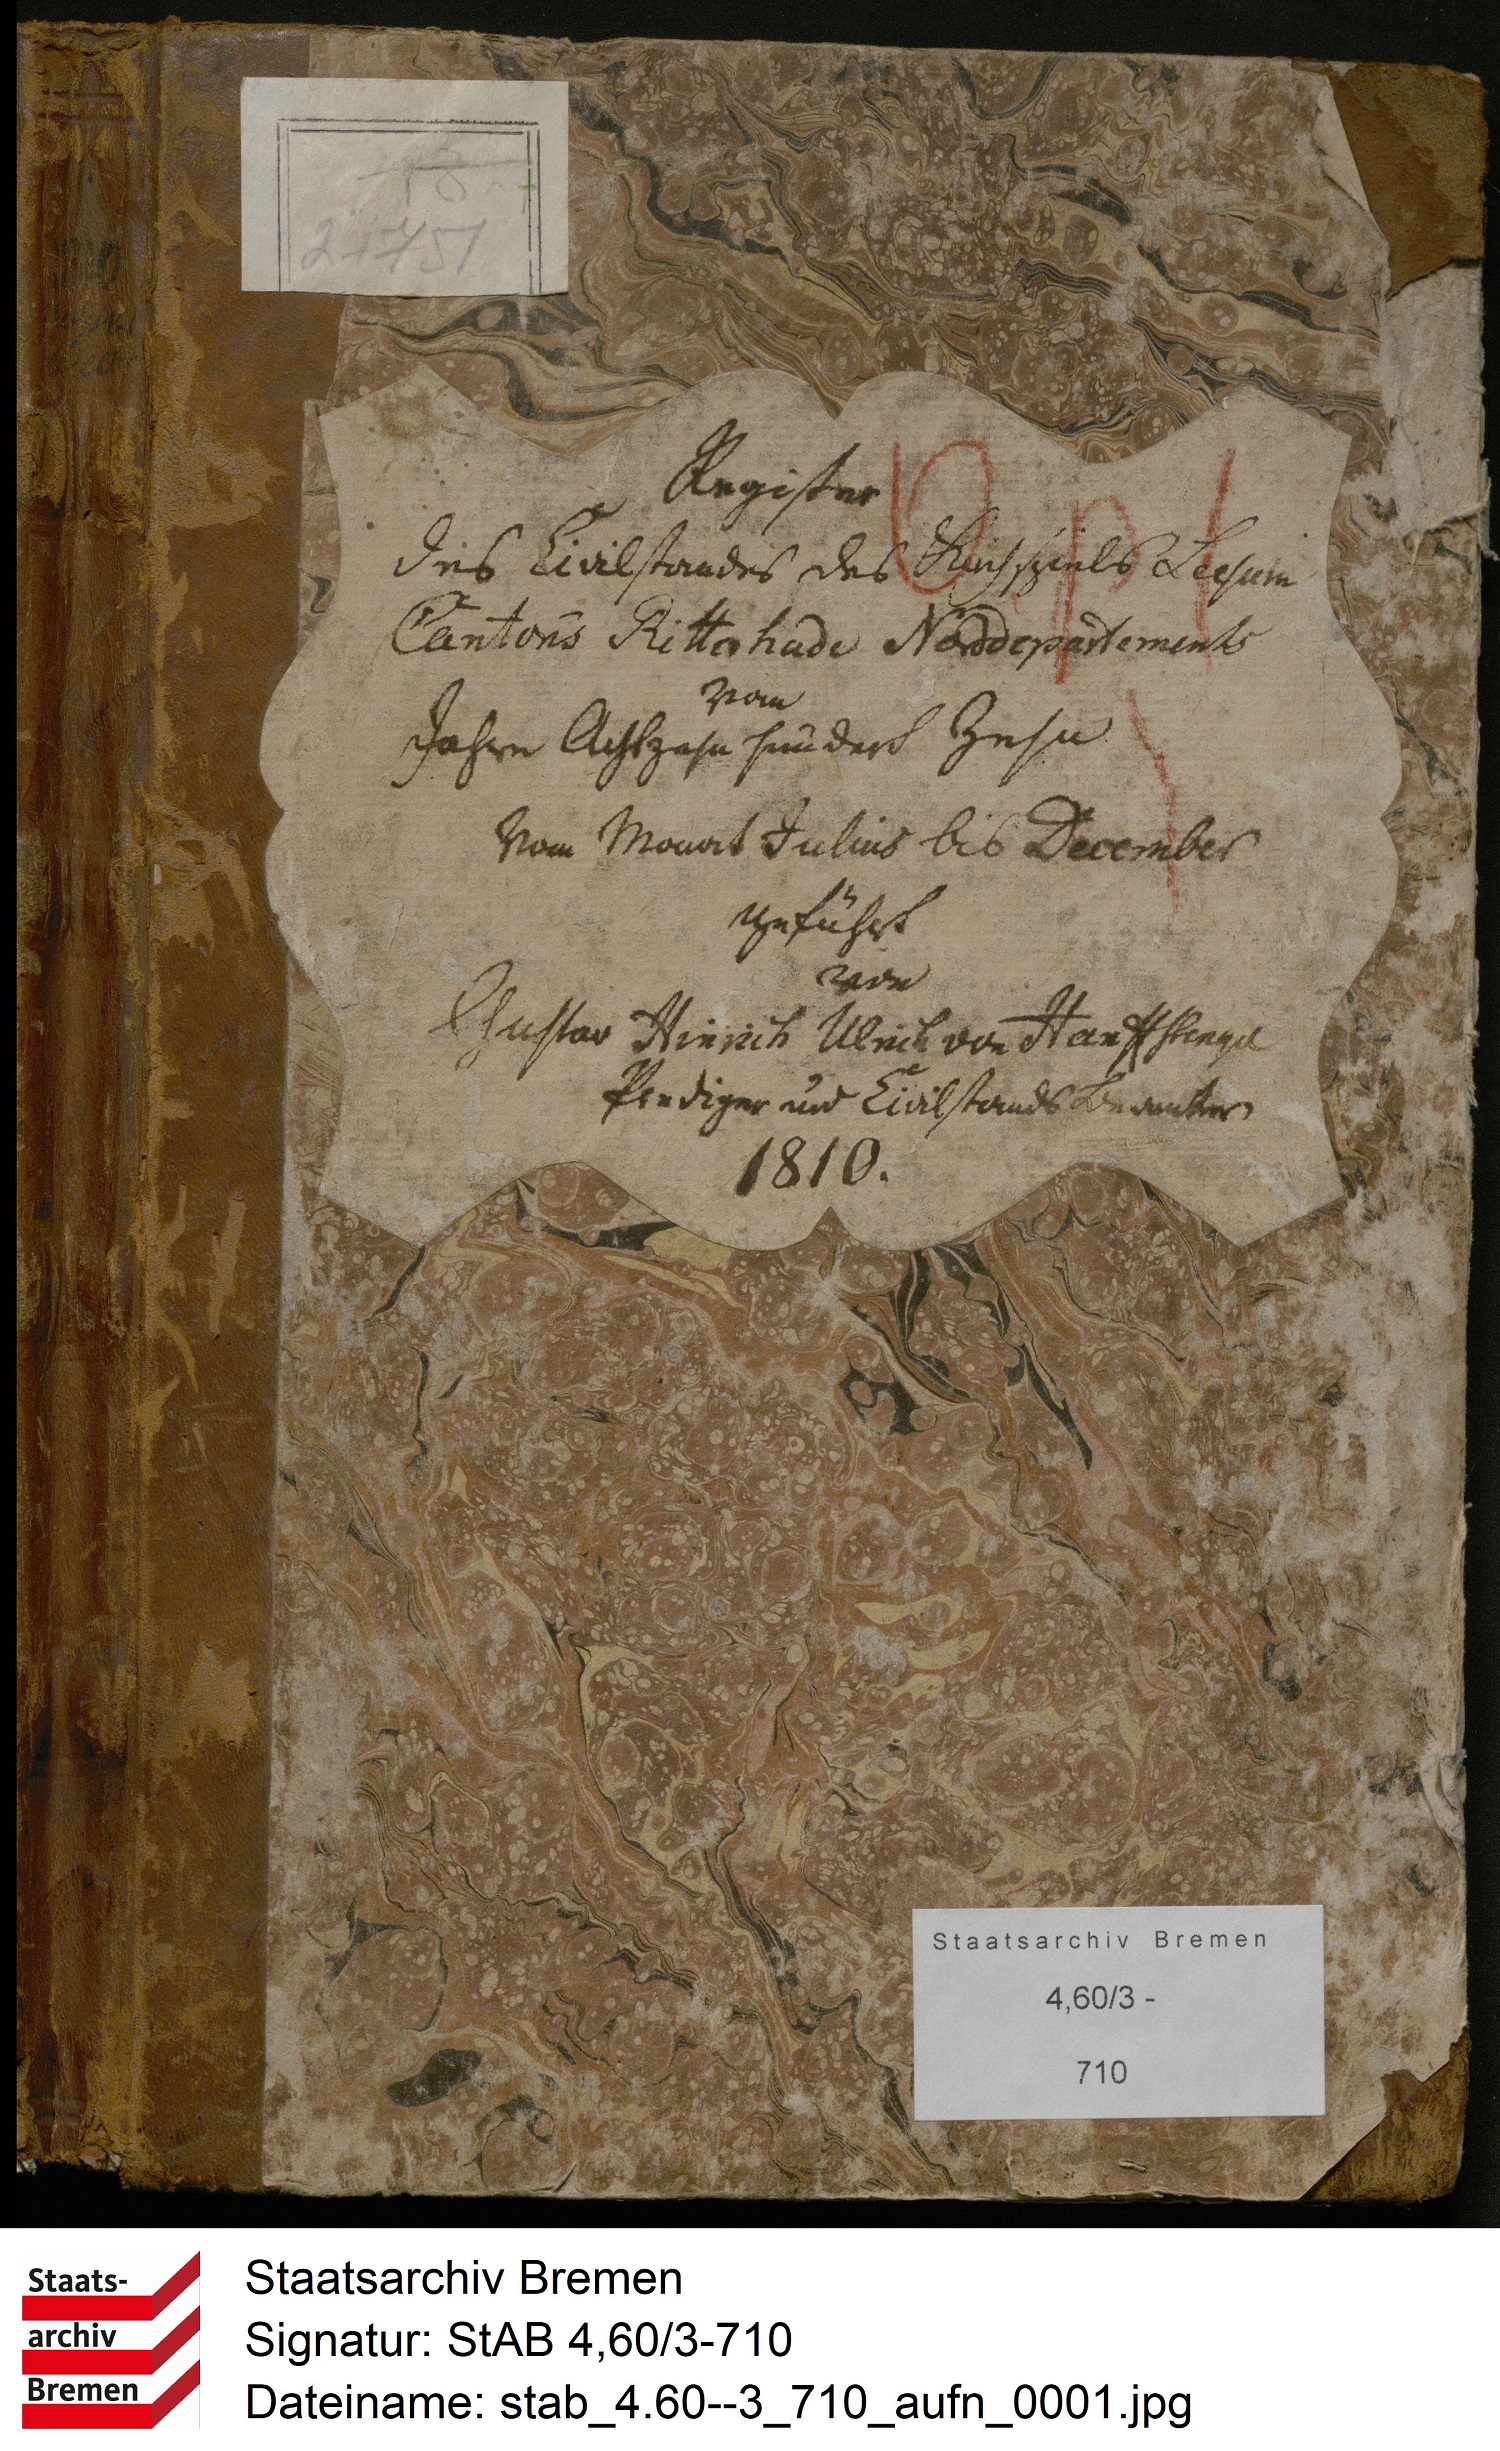 21751
Register
des Civilstandes des Kirchspiels Lesum
Cantons Ritterhude Norddepartements
vom
Jahre Achtzehn hundert Zehn
vom Monat Julius bis December
geführt
von
Gustav Hinrich Ulrich von Hanffstengel
Prediger und Civilstands Beamter
1810.
Staatsarchiv Bremen
4,60/3 -
710
Staats-
archiv
Bremen
Staatsarchiv Bremen
Signatur: StAB 4,60/3-710
Dateiname: stab_4.60--3_710_aufn_0001.jpg